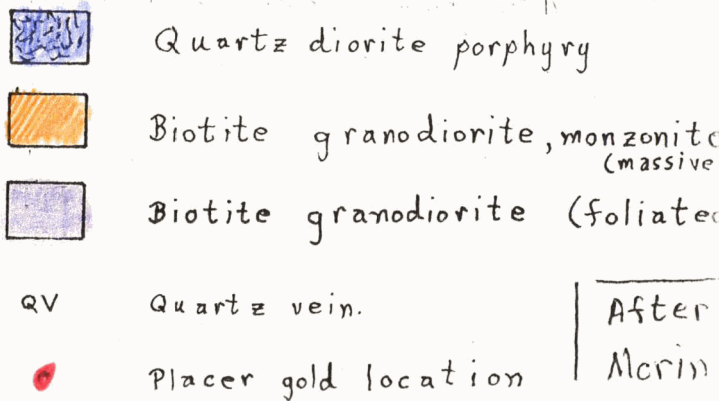 Quartz diorite porphyry
Biotite granodiorite, monzonite
(massive
Biotite granodiorite (foliated
QV Quartz vein.
After
Placer gold location